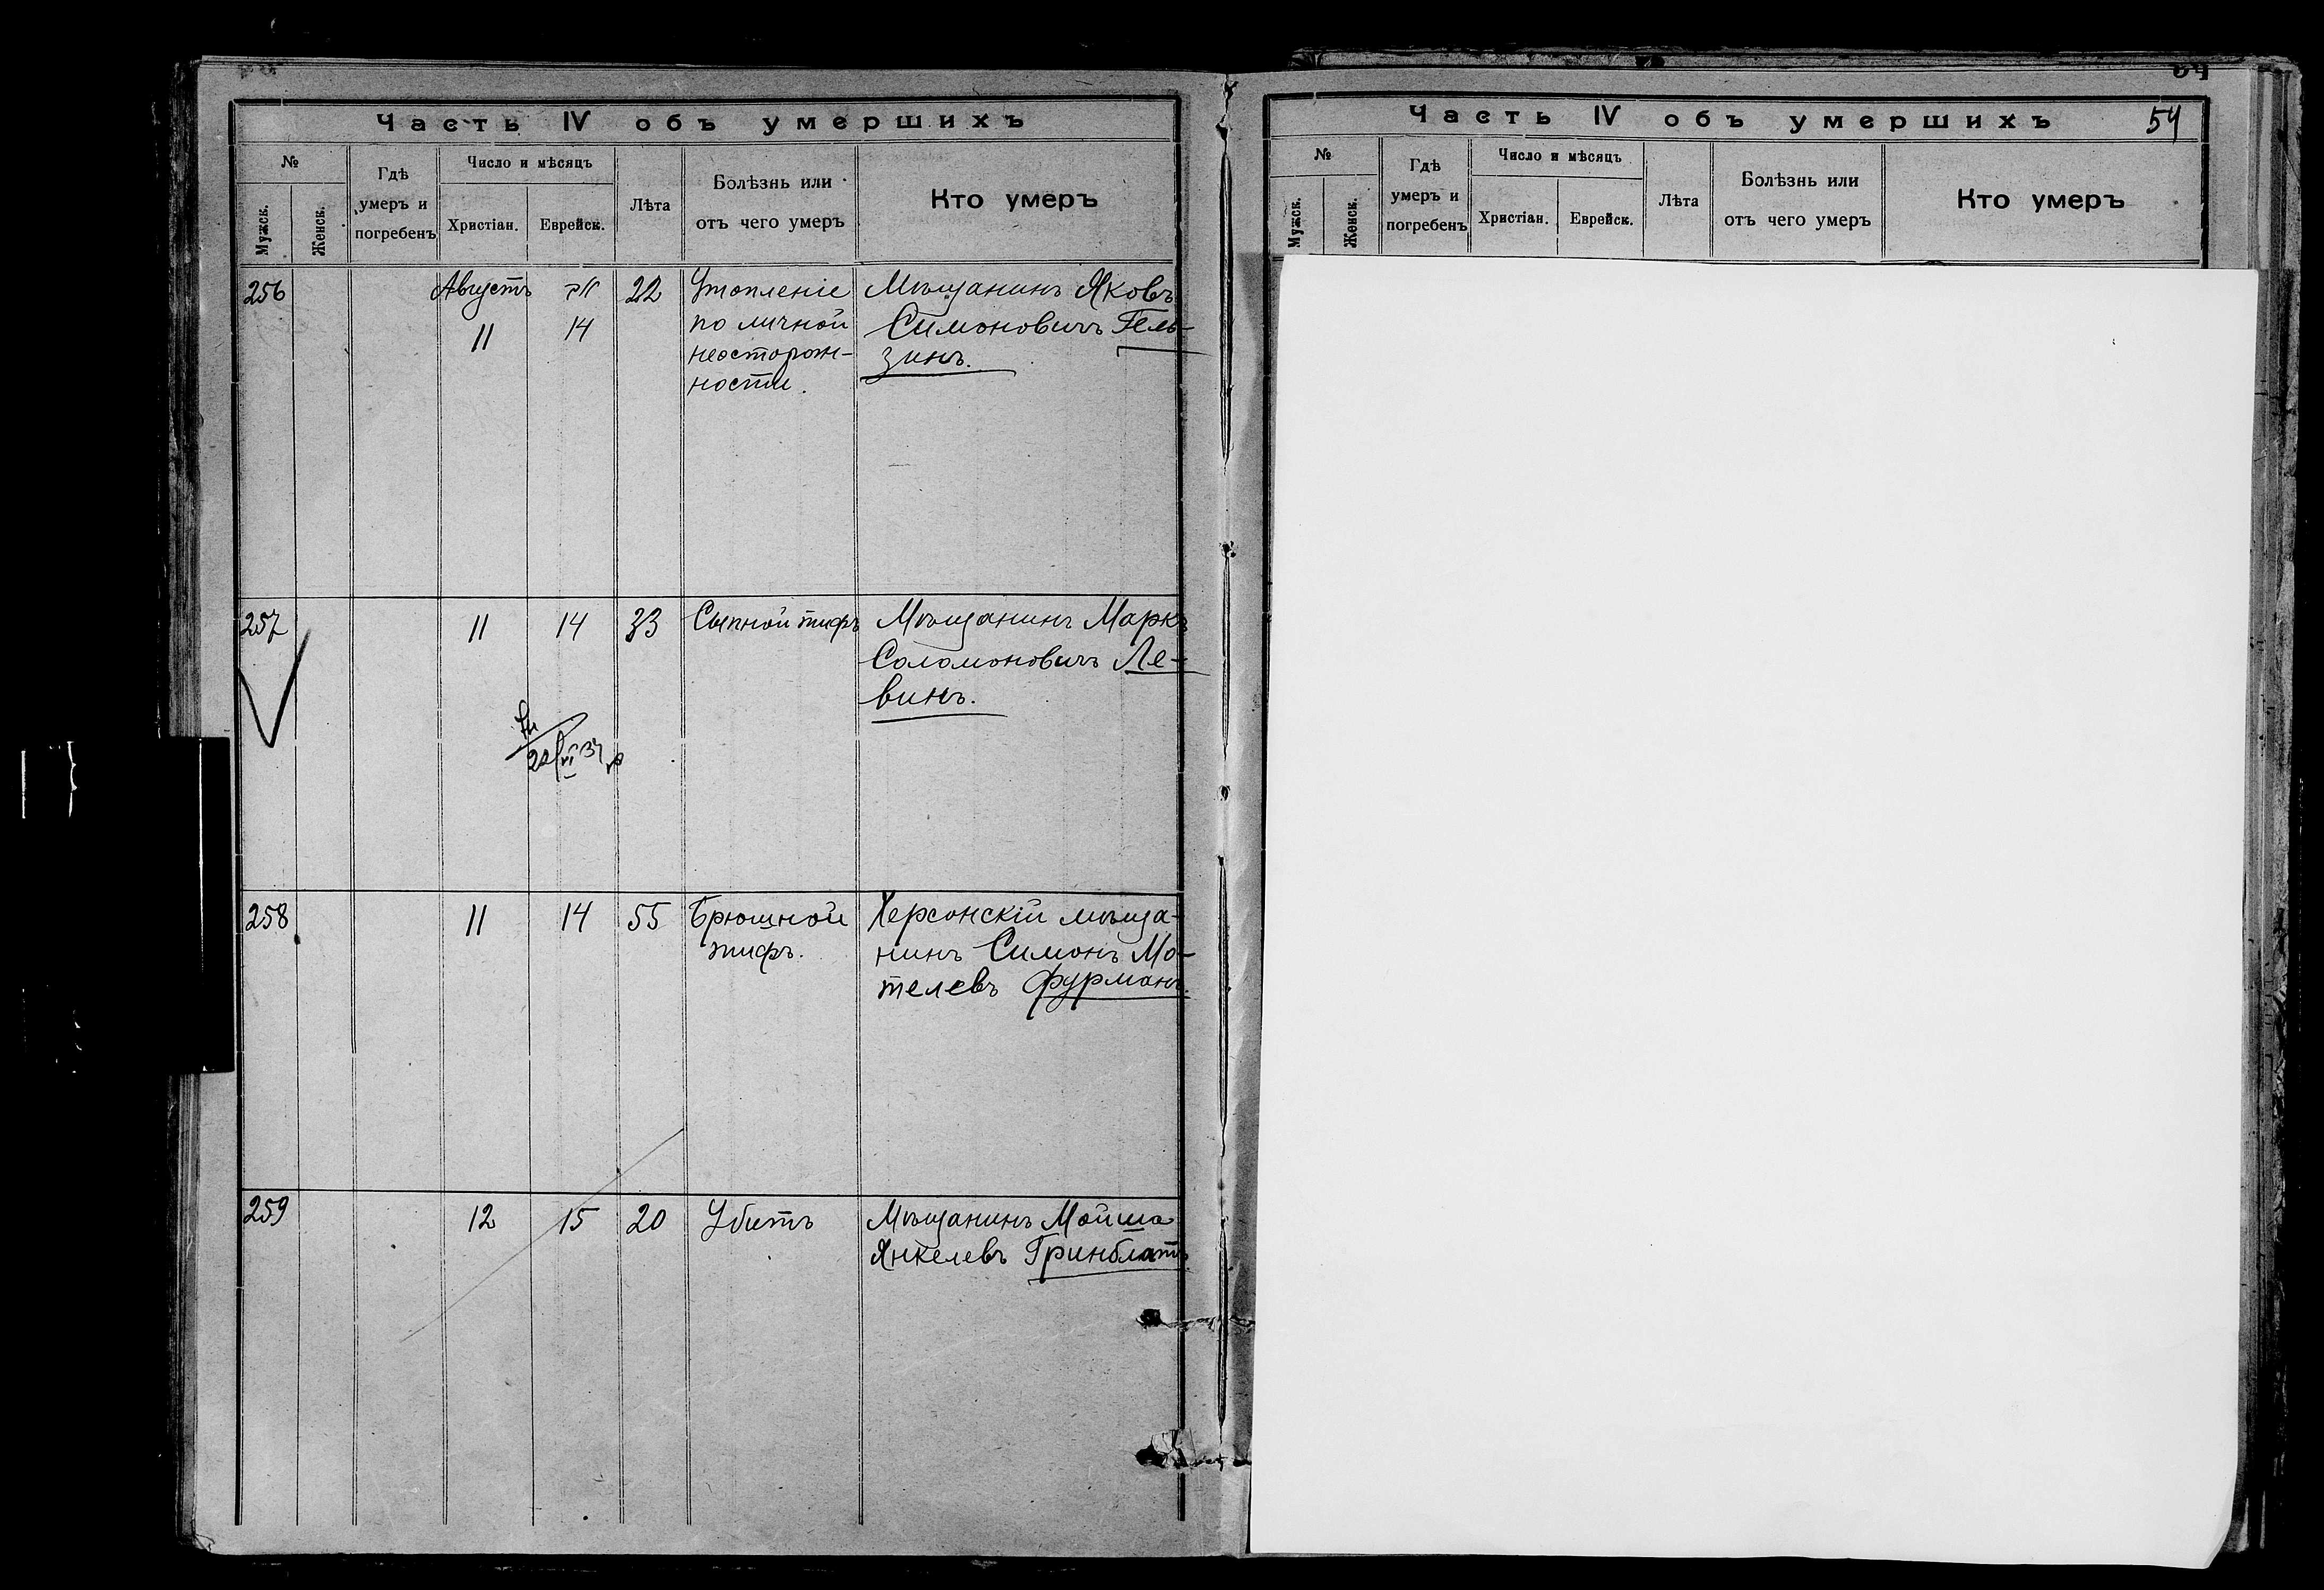 Часть IV объ умершихъ
№
Мужск.
Женск.
Гдѣ
умеръ и
погребенъ
Число и мѣсяцъ
Христіан.
Еврейск.
Лѣта
Болѣзнь или
отъ чего умеръ
Кто умеръ
256
Августъ
11
14
22
Утопленіе
по личной
неосторож-
ности.
Мѣщанинъ Яковъ
Симоновичъ Гель-
зинъ.
257
11
14
33
Сыпной тифъ
Мѣщанинъ Маркъ
Соломоновичъ Ле-
винъ.
258
11
14
55
Брюшной
тифъ.
Херсонскій мѣща-
нинъ Симонъ Мо-
телевъ Фурманъ.
259
12
15
20
Убитъ
Мѣщанинъ Мойша
Янкелевъ Гринблатъ
Часть IV объ умершихъ
54
№
Мужск.
Женск.
Гдѣ
умеръ и
погребенъ
Число и мѣсяцъ
Христіан.
Еврейск.
Лѣта
Болѣзнь или
отъ чего умеръ
Кто умеръ